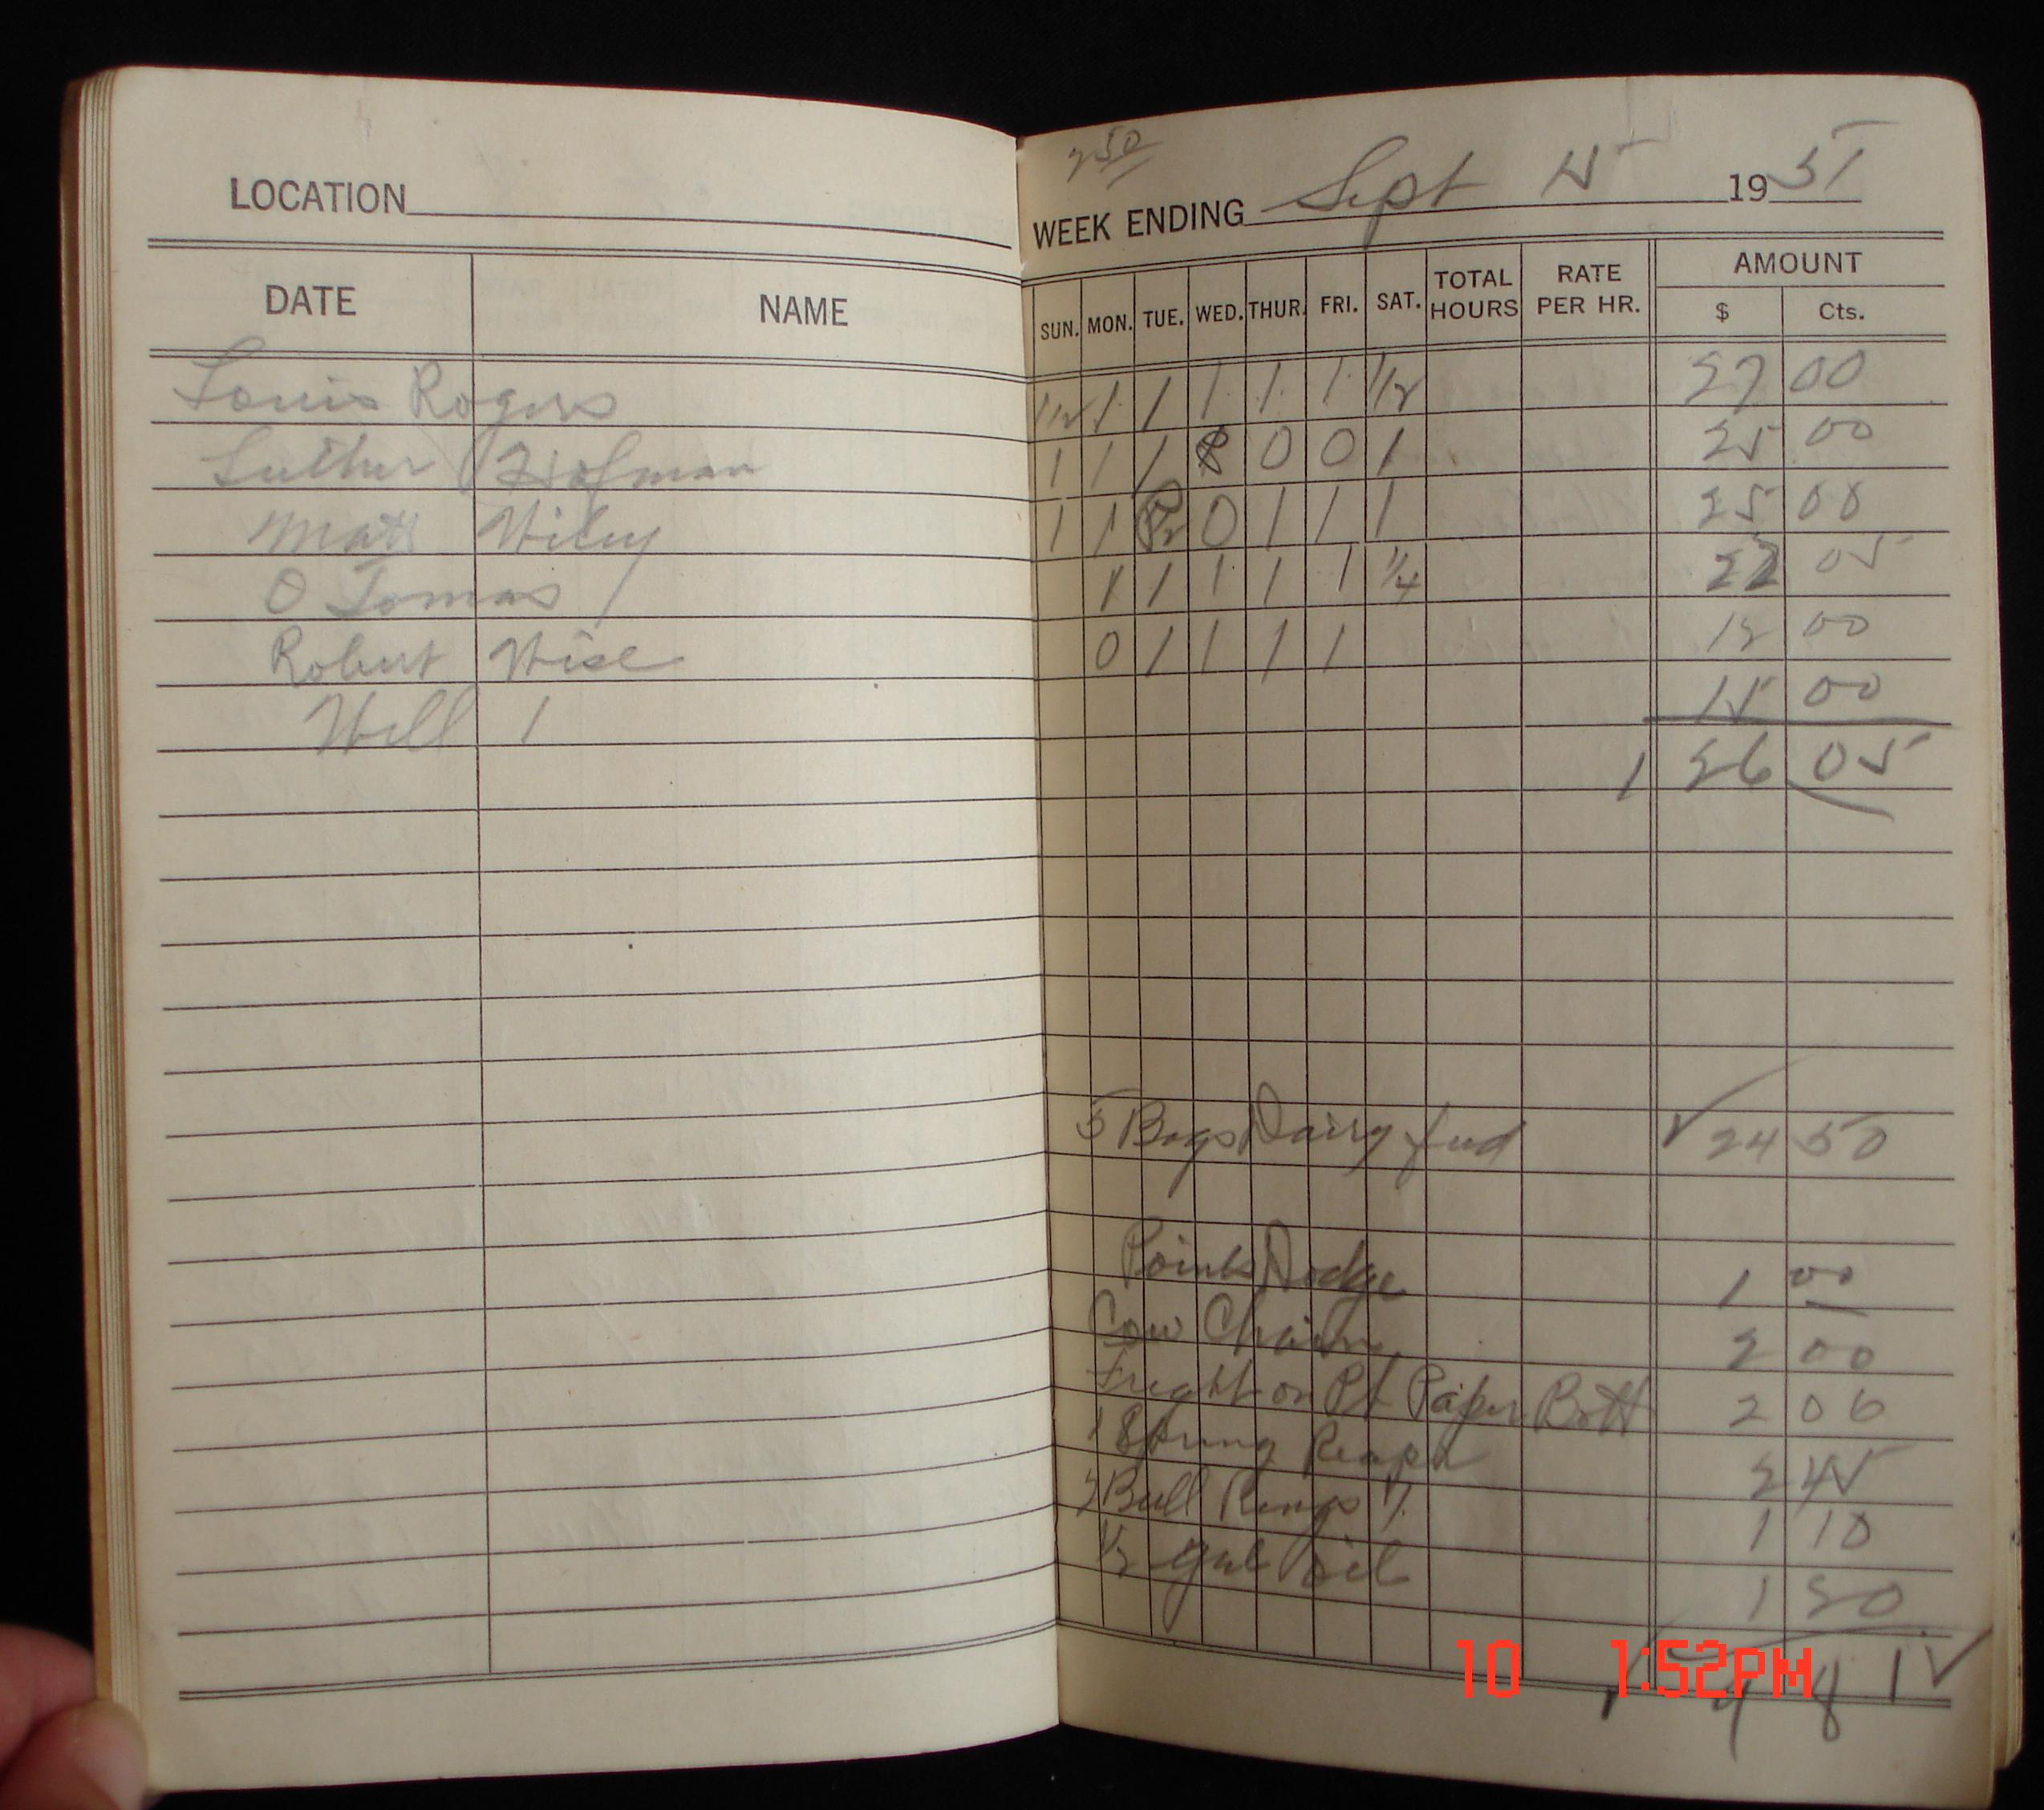 LOCATION
DATE NAME
Louis Rogers
Luther Hofman
Matt Wiley
O Tomas
Robert Wise
Will 1
WEEK ENDING Sept 15 1951
SUN. MON. TUE. WED. THUR. FRI. SAT. TOTAL HOURS RATE PER HR. AMOUNT $ Cts.
1/2 1 1 1 1 1 1/2 27 00
1 1 1 0 0 1 25 00
1 1 0 1 1 1 25 00
1 1 1 1 1 1/4 22 05
0 1 1 1 1 12 00
15 00
1 26 05
5 Bags Dairy feed 24 50
Points Dodge 1 00
Cow Chain 2 00
Freight on Pt Paper Bott 2 06
1 Spring Reaper 2 45
2 Bull Rings 1 10
1/2 gal oil 1 50
10 1:52PM